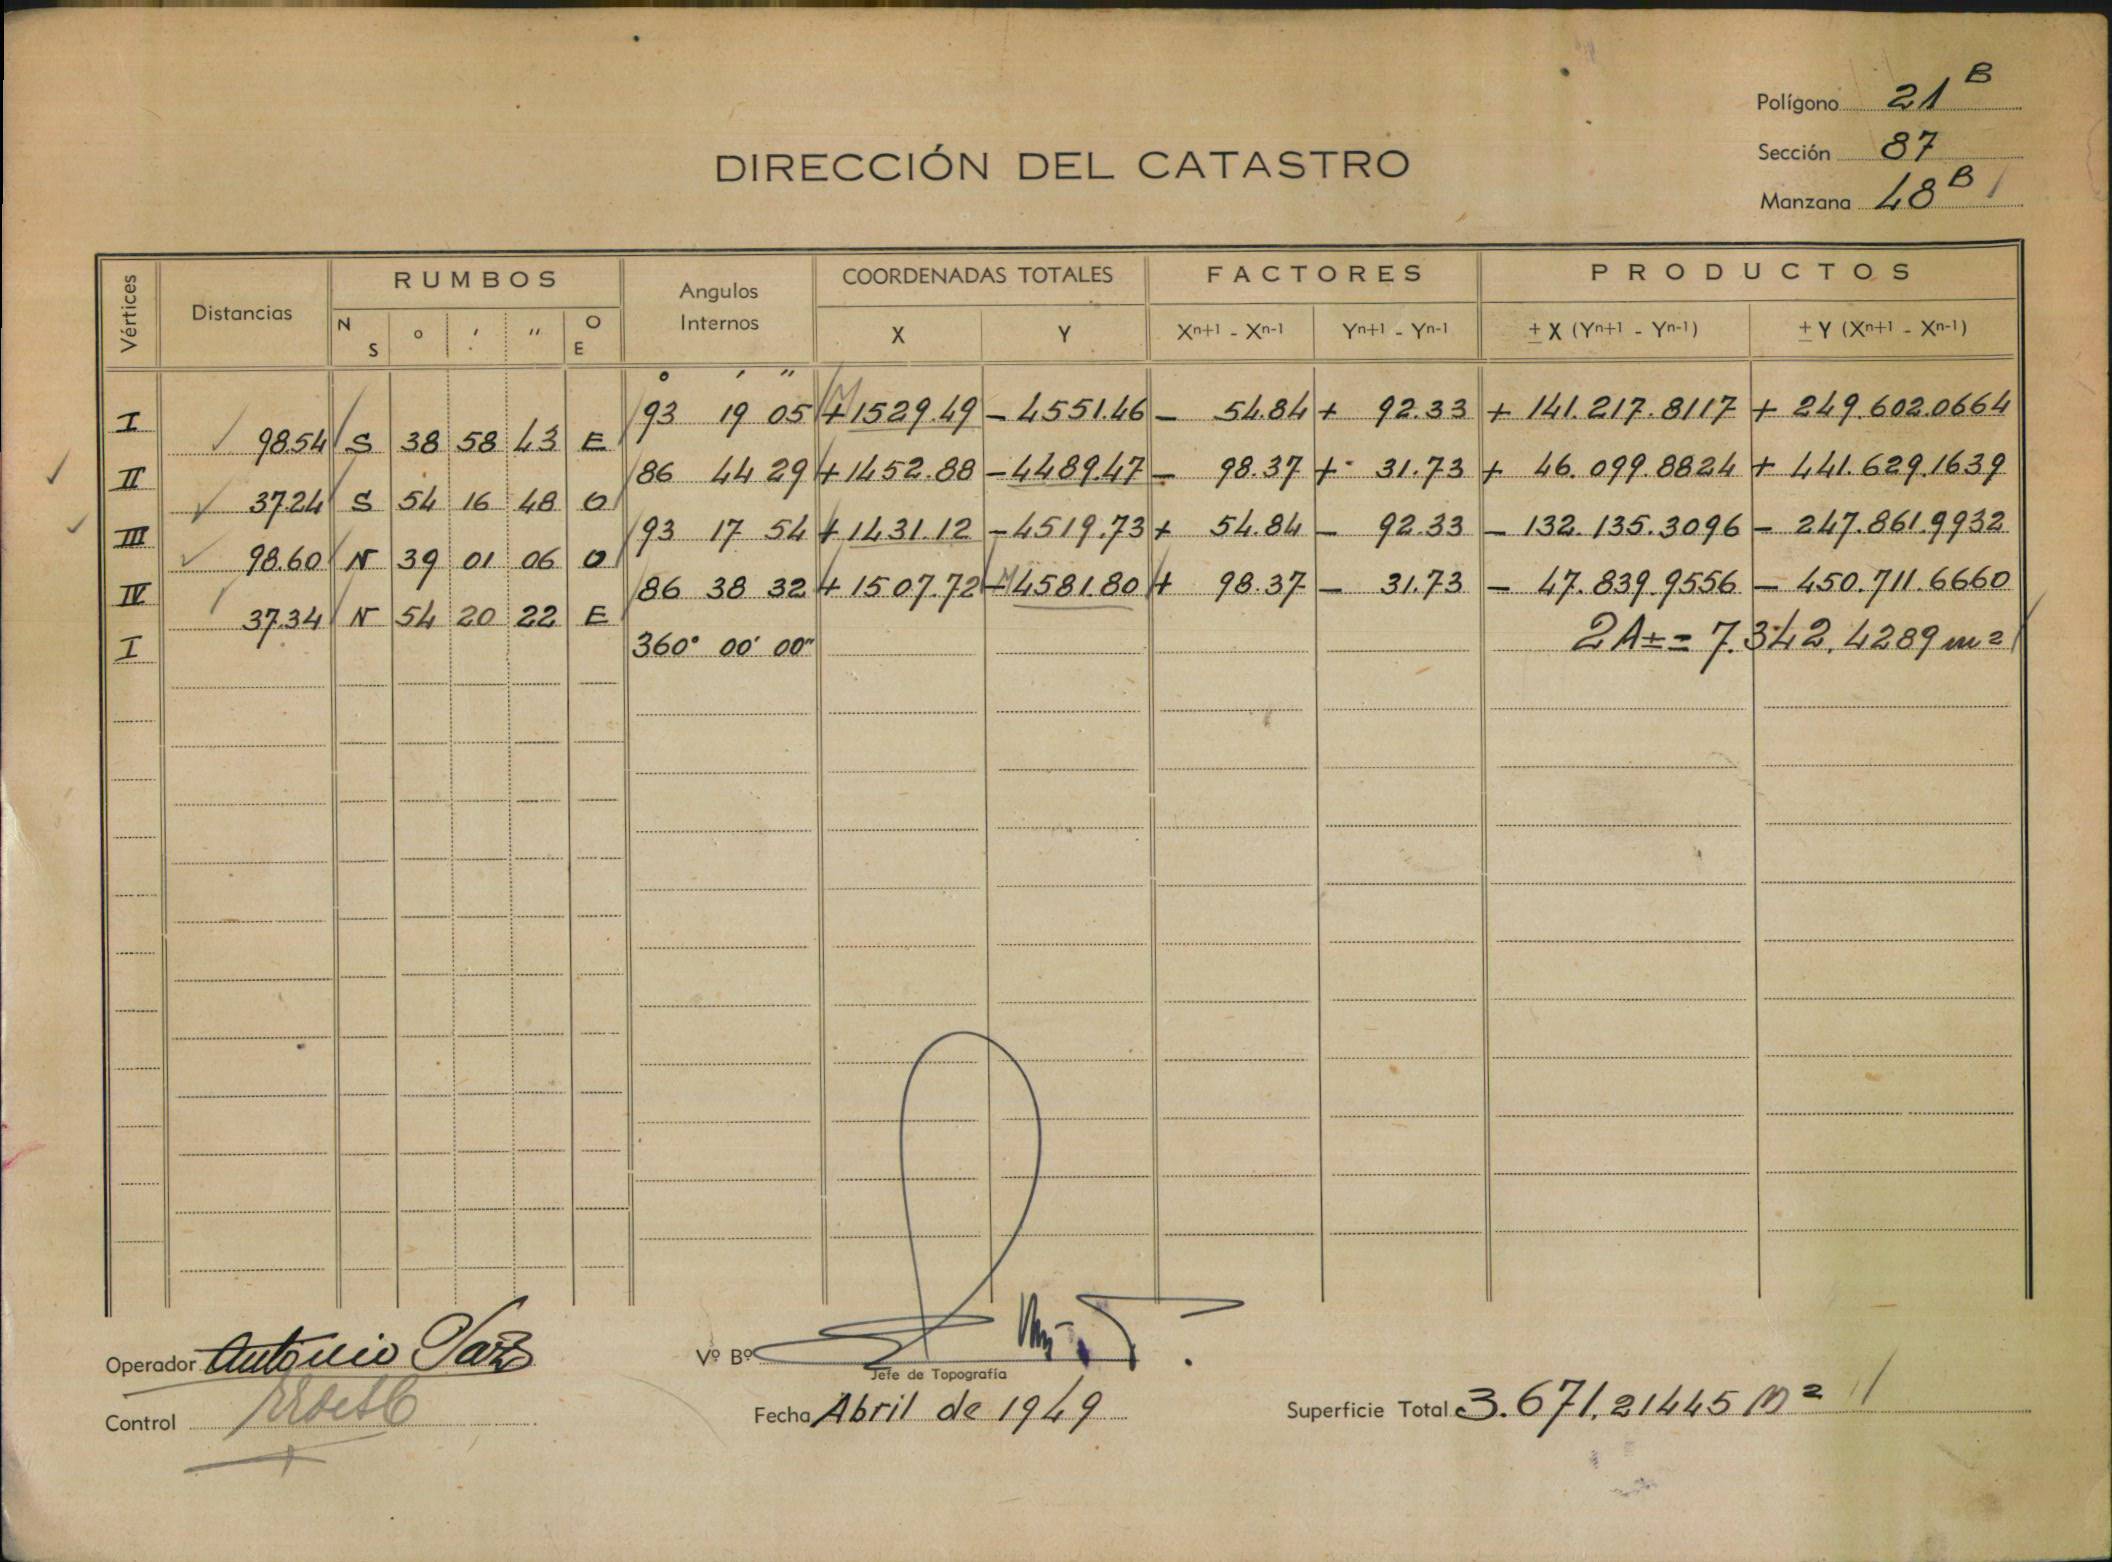 Polígono 21 B
Sección 87
Manzana 48 B
DIRECCIÓN DEL CATASTRO
Vértices Distancias RUMBOS Angulos Internos COORDENADAS TOTALES FACTORES PRODUCTOS
N S ° ′ ″ O E X Y Xn+1 - Xn-1 Yn+1 - Yn-1 ± X (Yn+1 - Yn-1) ± Y (Xn+1 - Xn-1)
° ′ ″
I 93 19 05 + 1529.49 - 4551.46 - 54.84 + 92.33 + 141.217.8117 + 249.602.0664
98.54 S 38 58 43 E
II 86 44 29 + 1452.88 - 4489.47 - 98.37 + 31.73 + 46.099.8824 + 441.629.1639
37.24 S 54 16 48 O
III 93 17 54 + 1431.12 - 4519.73 + 54.84 - 92.33 - 132.135.3096 - 247.861.9932
98.60 N 39 01 06 O
IV 86 38 32 + 1507.72 - 4581.80 + 98.37 - 31.73 - 47.839.9556 - 450.711.6660
37.34 N 54 20 22 E
I 360° 00′ 00″ 2A± = 7.342.4289 m2
Operador Antonio
Vº Bº
Jefe de Topografía
Control
Fecha Abril de 1949
Superficie Total 3.671.21445 m2